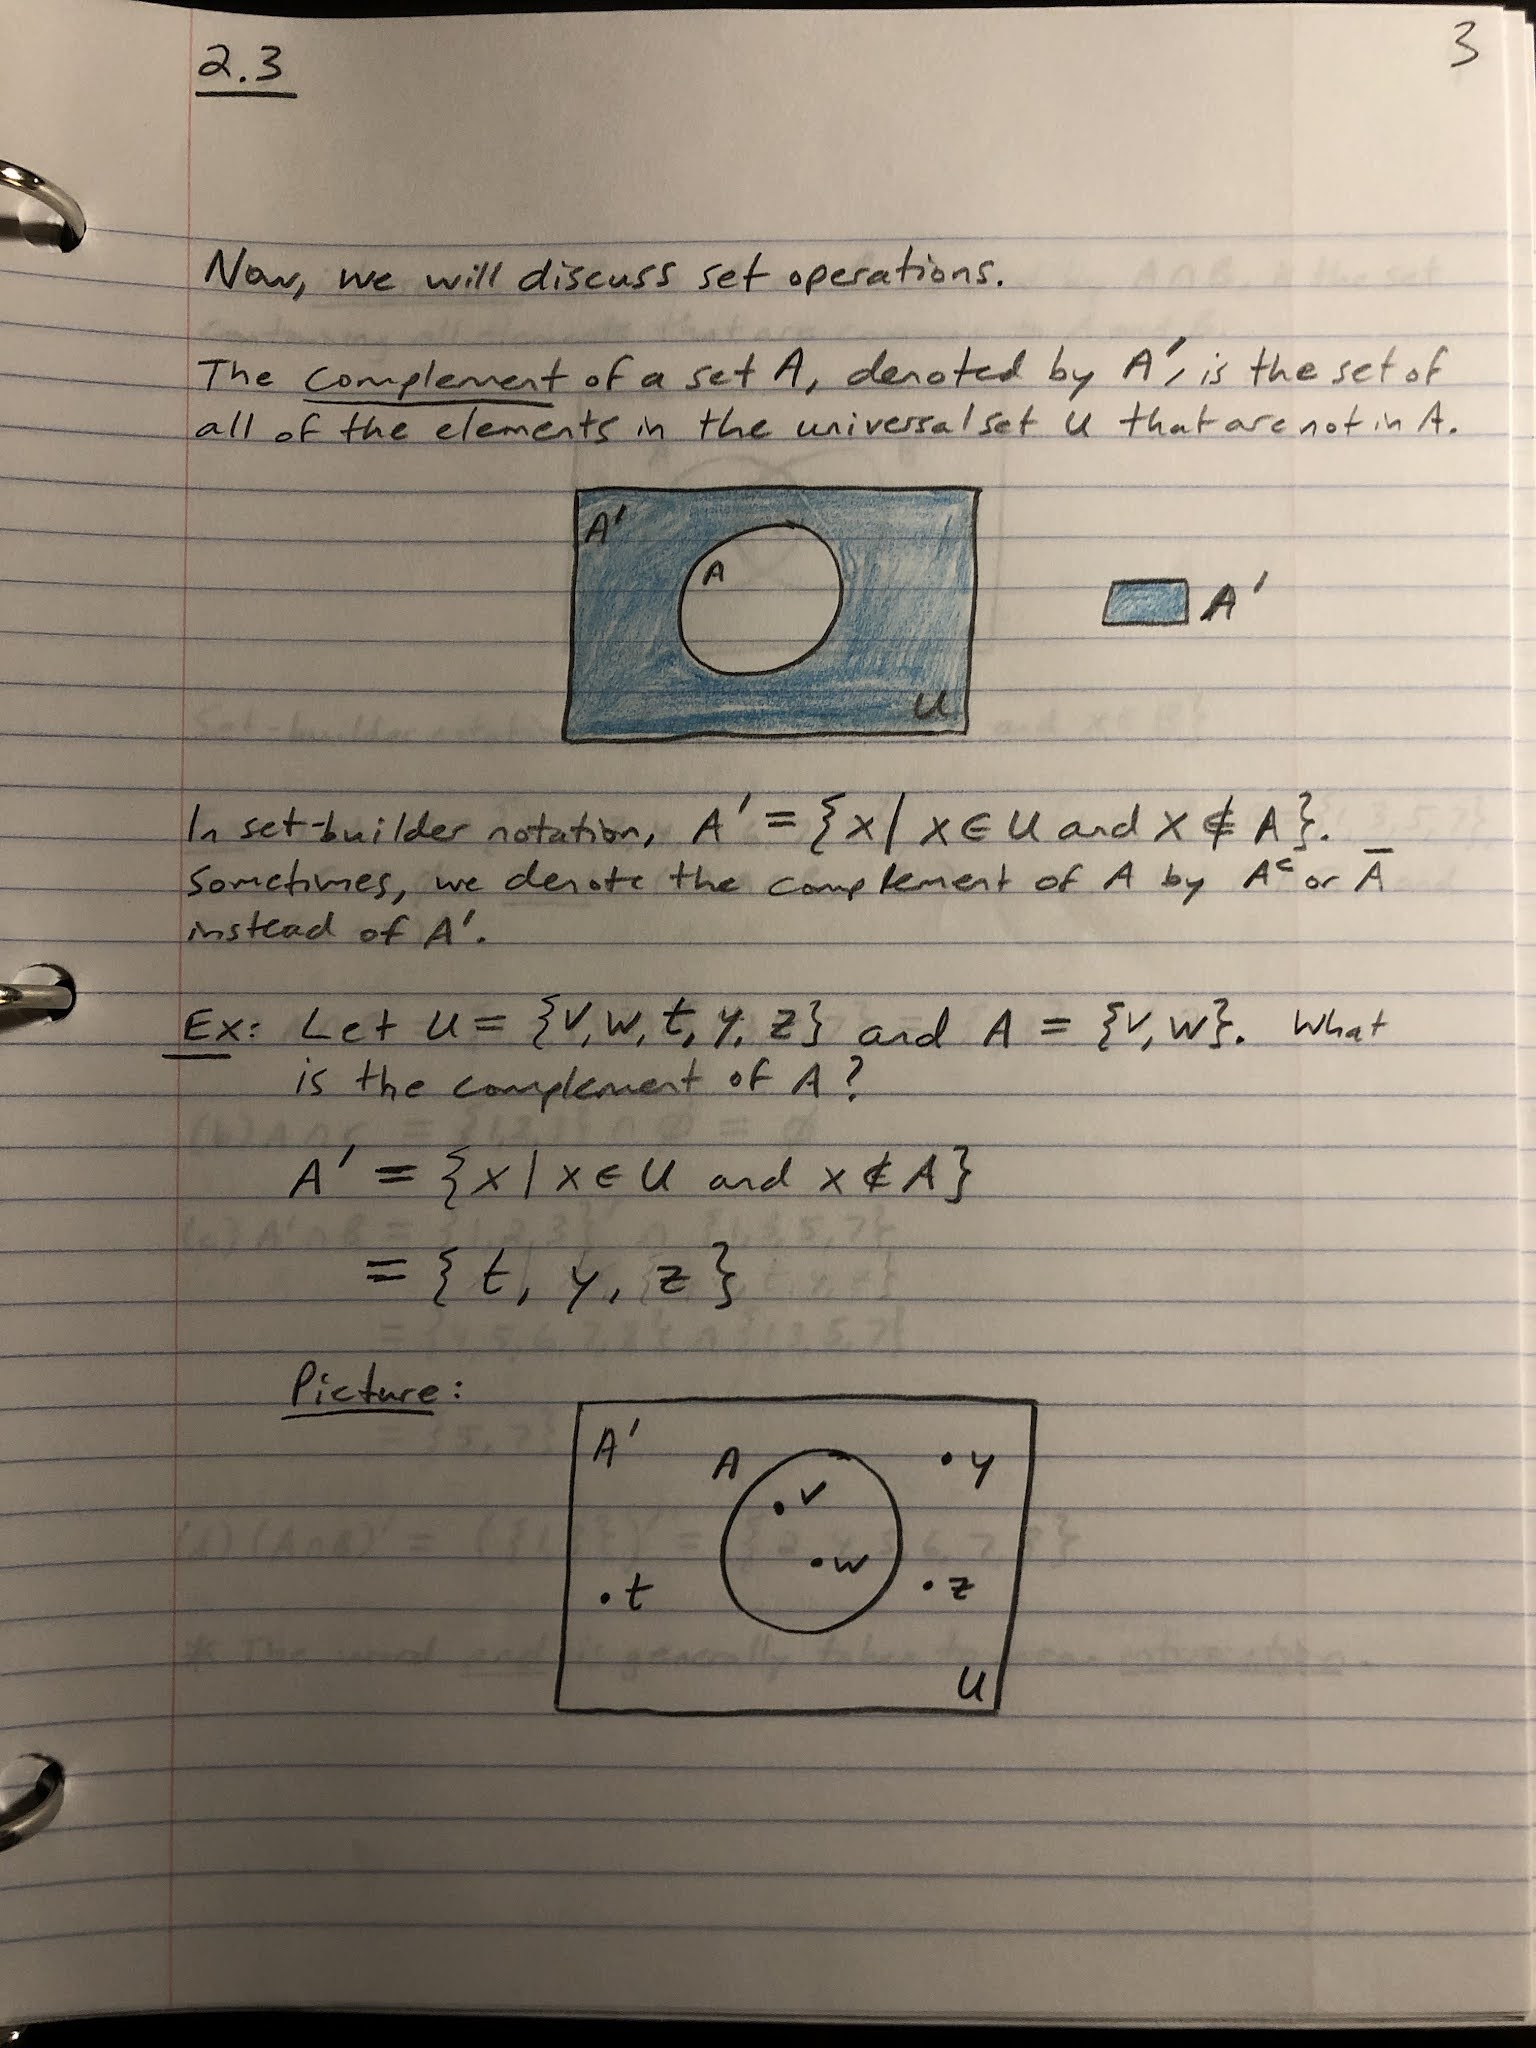 2.3
3
Now, we will discuss set operations.
The complement of a set A, denoted by A', is the set of
all of the elements in the universal set U that are not in A.
A'
A
A'
U
In set-builder notation, A' = {x | x ∈ U and x ∉ A}.
Sometimes, we denote the complement of A by Aᶜ or A̅
instead of A'.
Ex: Let U = {v, w, t, y, z} and A = {v, w}. What
is the complement of A?
A' = {x | x ∈ U and x ∉ A}
= {t, y, z}
Picture:
A'
A
• y
• v
• w
• t
• z
U